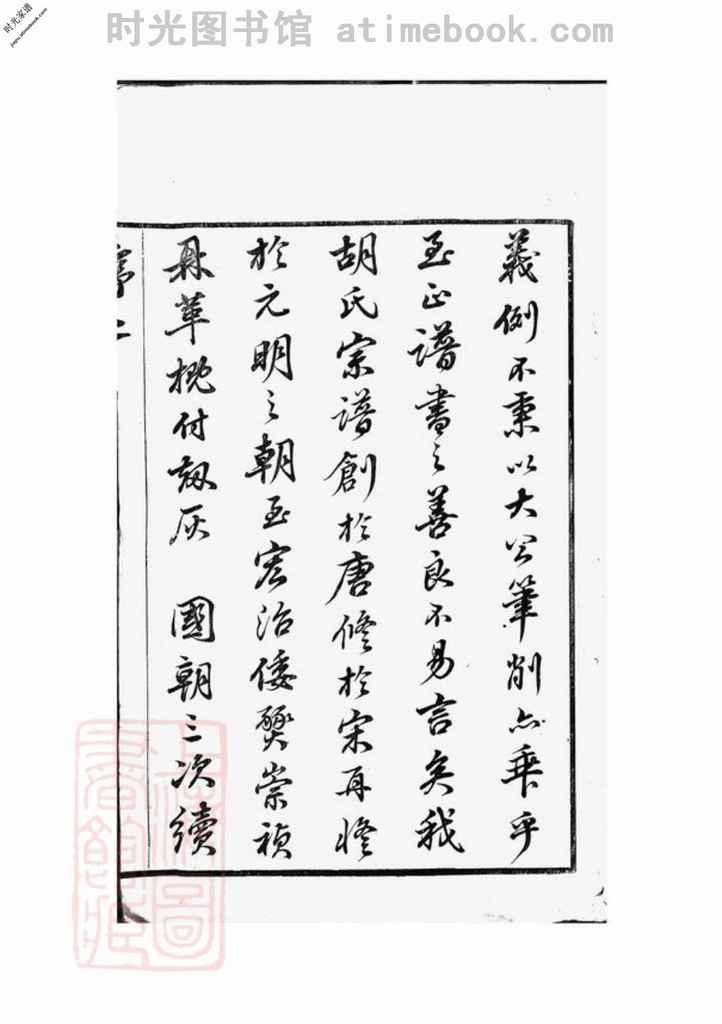 时光图书馆 atimebook.com
时光家谱
jiapu.atimebook.com
義例不秉以大公筆削亦乖乎
至正譜書之善良不易言矣我
胡氏宗譜創於唐修於宋再修
於元明之朝至宏治倭爕崇禎
鼎革概付刼灰 國朝三次續
序二